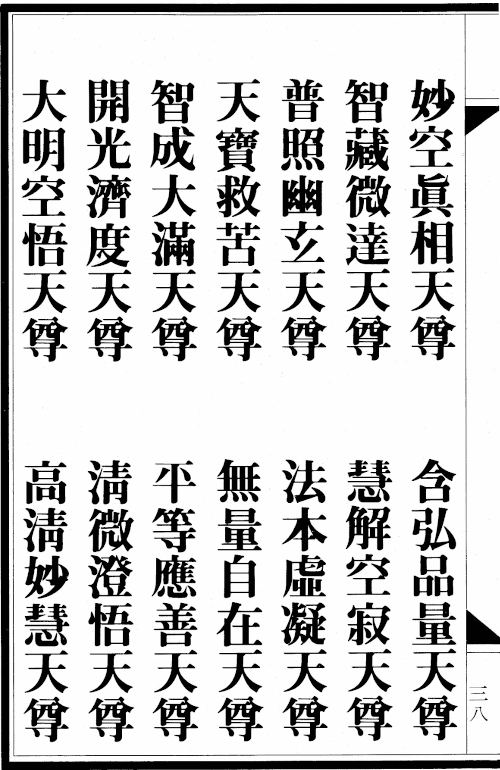 妙空眞相天尊　含弘品量天尊
智藏微達天尊　慧解空寂天尊
普照幽玄天尊　法本虛凝天尊
天寶救苦天尊　無量自在天尊
智成大滿天尊　平等應善天尊
開光濟度天尊　清微澄悟天尊
大明空悟天尊　高清妙慧天尊
三八